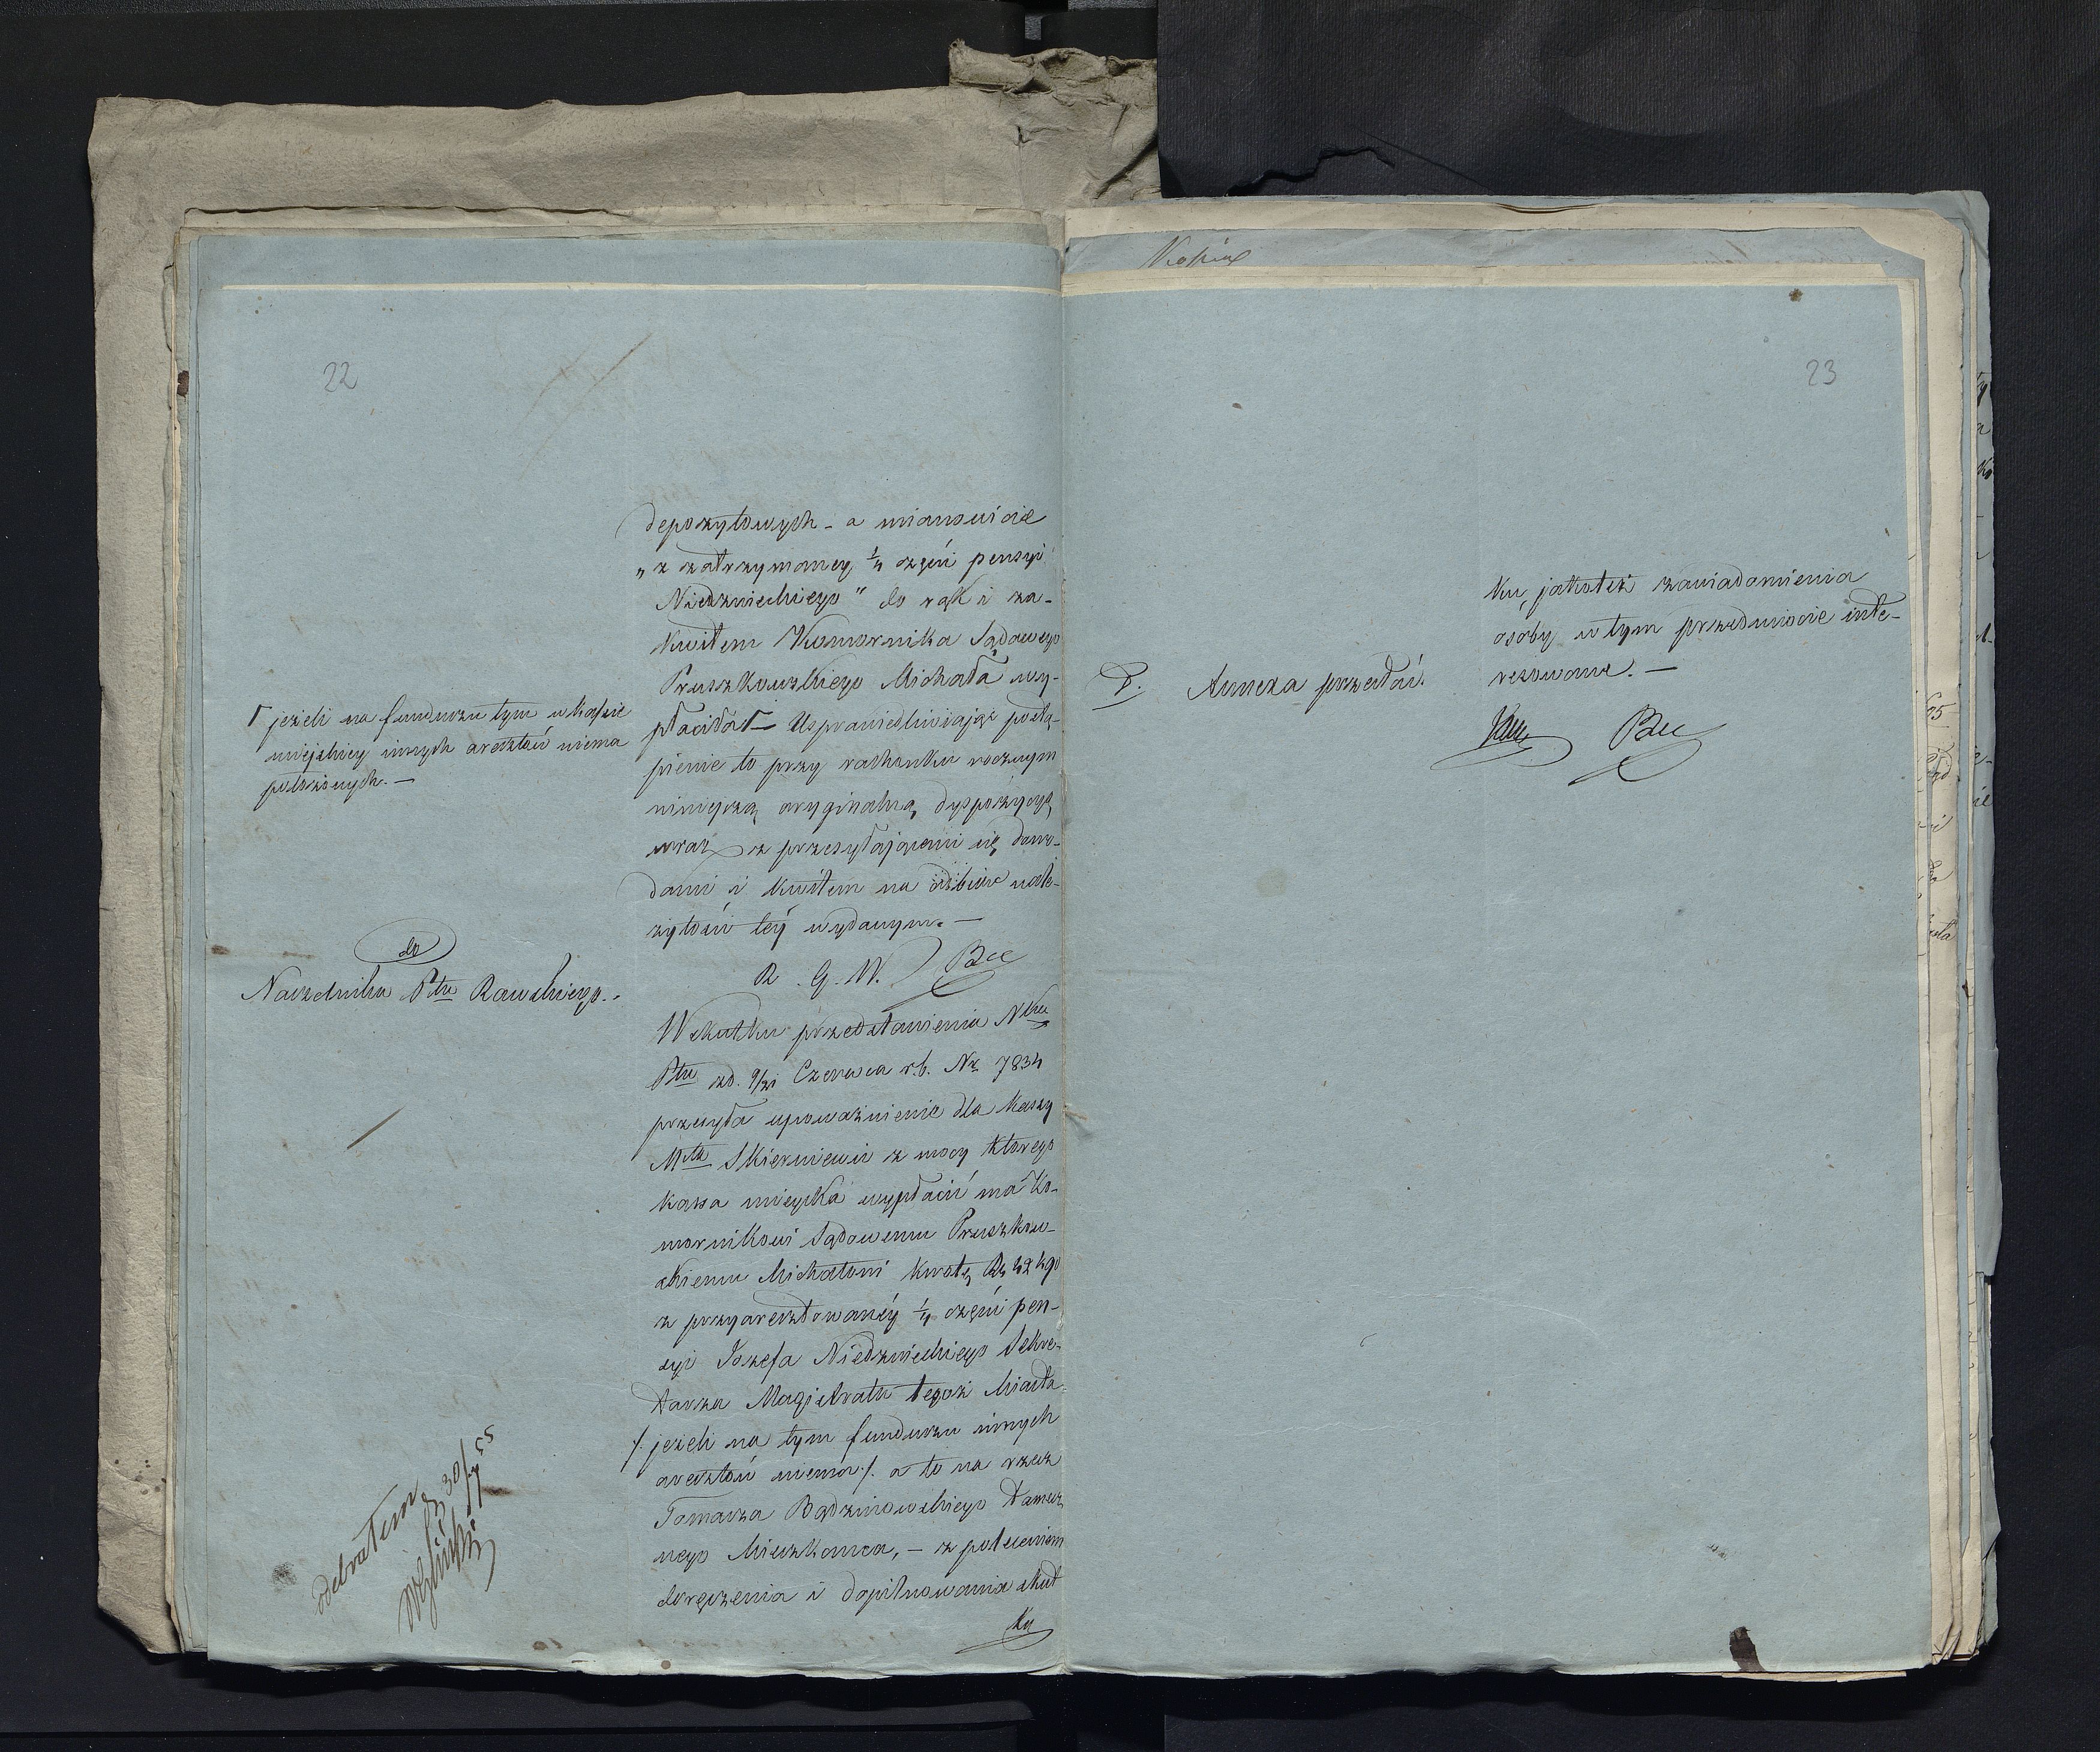 22
depozytowych - a mianowicie
„z zatrzymaney 1/4 częsci pensyi
Niedzwieckiego" do rąk i za-
kwitem Komornika Sądowego
Pruszkowskiego Michała wy-
płaciła Γ– Usprawiedliwiając postą-
pienie to przy rachunku rocznym
ninieyszą oryginalną dyspozycyą
wraz z przesyłającemi się dowo-
dami i kwitem na odbiór nale-
żytości téy wydanym. —
R. G. W.
Γ jeżeli na funduszu tym w kassie
mieyskiey innych aresztów niema
położonych. —
do
Naczelnika Ptu Rawskiego. -
Wskutku przedstawienia Nka
Ptu zd. 9/21 Czerwca r.b. Nr 7834
przesyła upoważnienie dla Kassy
Mta Skierniewic z mocy którego
kassa mieyska wypłacić ma Ko-
mornikowi Sądowemu Pruszkow-
skiemu Michałowi kwotę Rs 42 k 90
z przyaresztowanéy 1/4 częsci pen-
syi Jozefa Niedzwieckiego Sekre-
tarza Magistratu tegoż Miasta
/. jeżeli na tym funduszu innych
aresztów niema ./. a to na rzecz
Tomasza Bądzinowskiego tamecz
nego Mieszkańca, – z poleceniem
doręczenia i dopilnowania skut
ku
odebrałem
23
Kopia
ku, jakoteż zawiadomienia
osoby w tym przedmiocie inte-
resowane. —
P. Annexa przesłać.